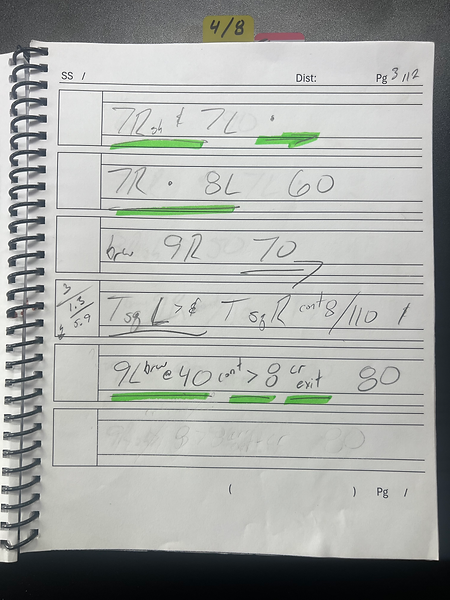 4/8
SS / Dist: Pg 3/12
7R sh ¢ 7L ·
7R · 8L 60
brw 9R 70
3 / 1.3 / 5.9
T sq L > ¢ T sq R cont 8/110 /
9L brw @ 40 cont > 8 cr exit 80
( ) Pg /